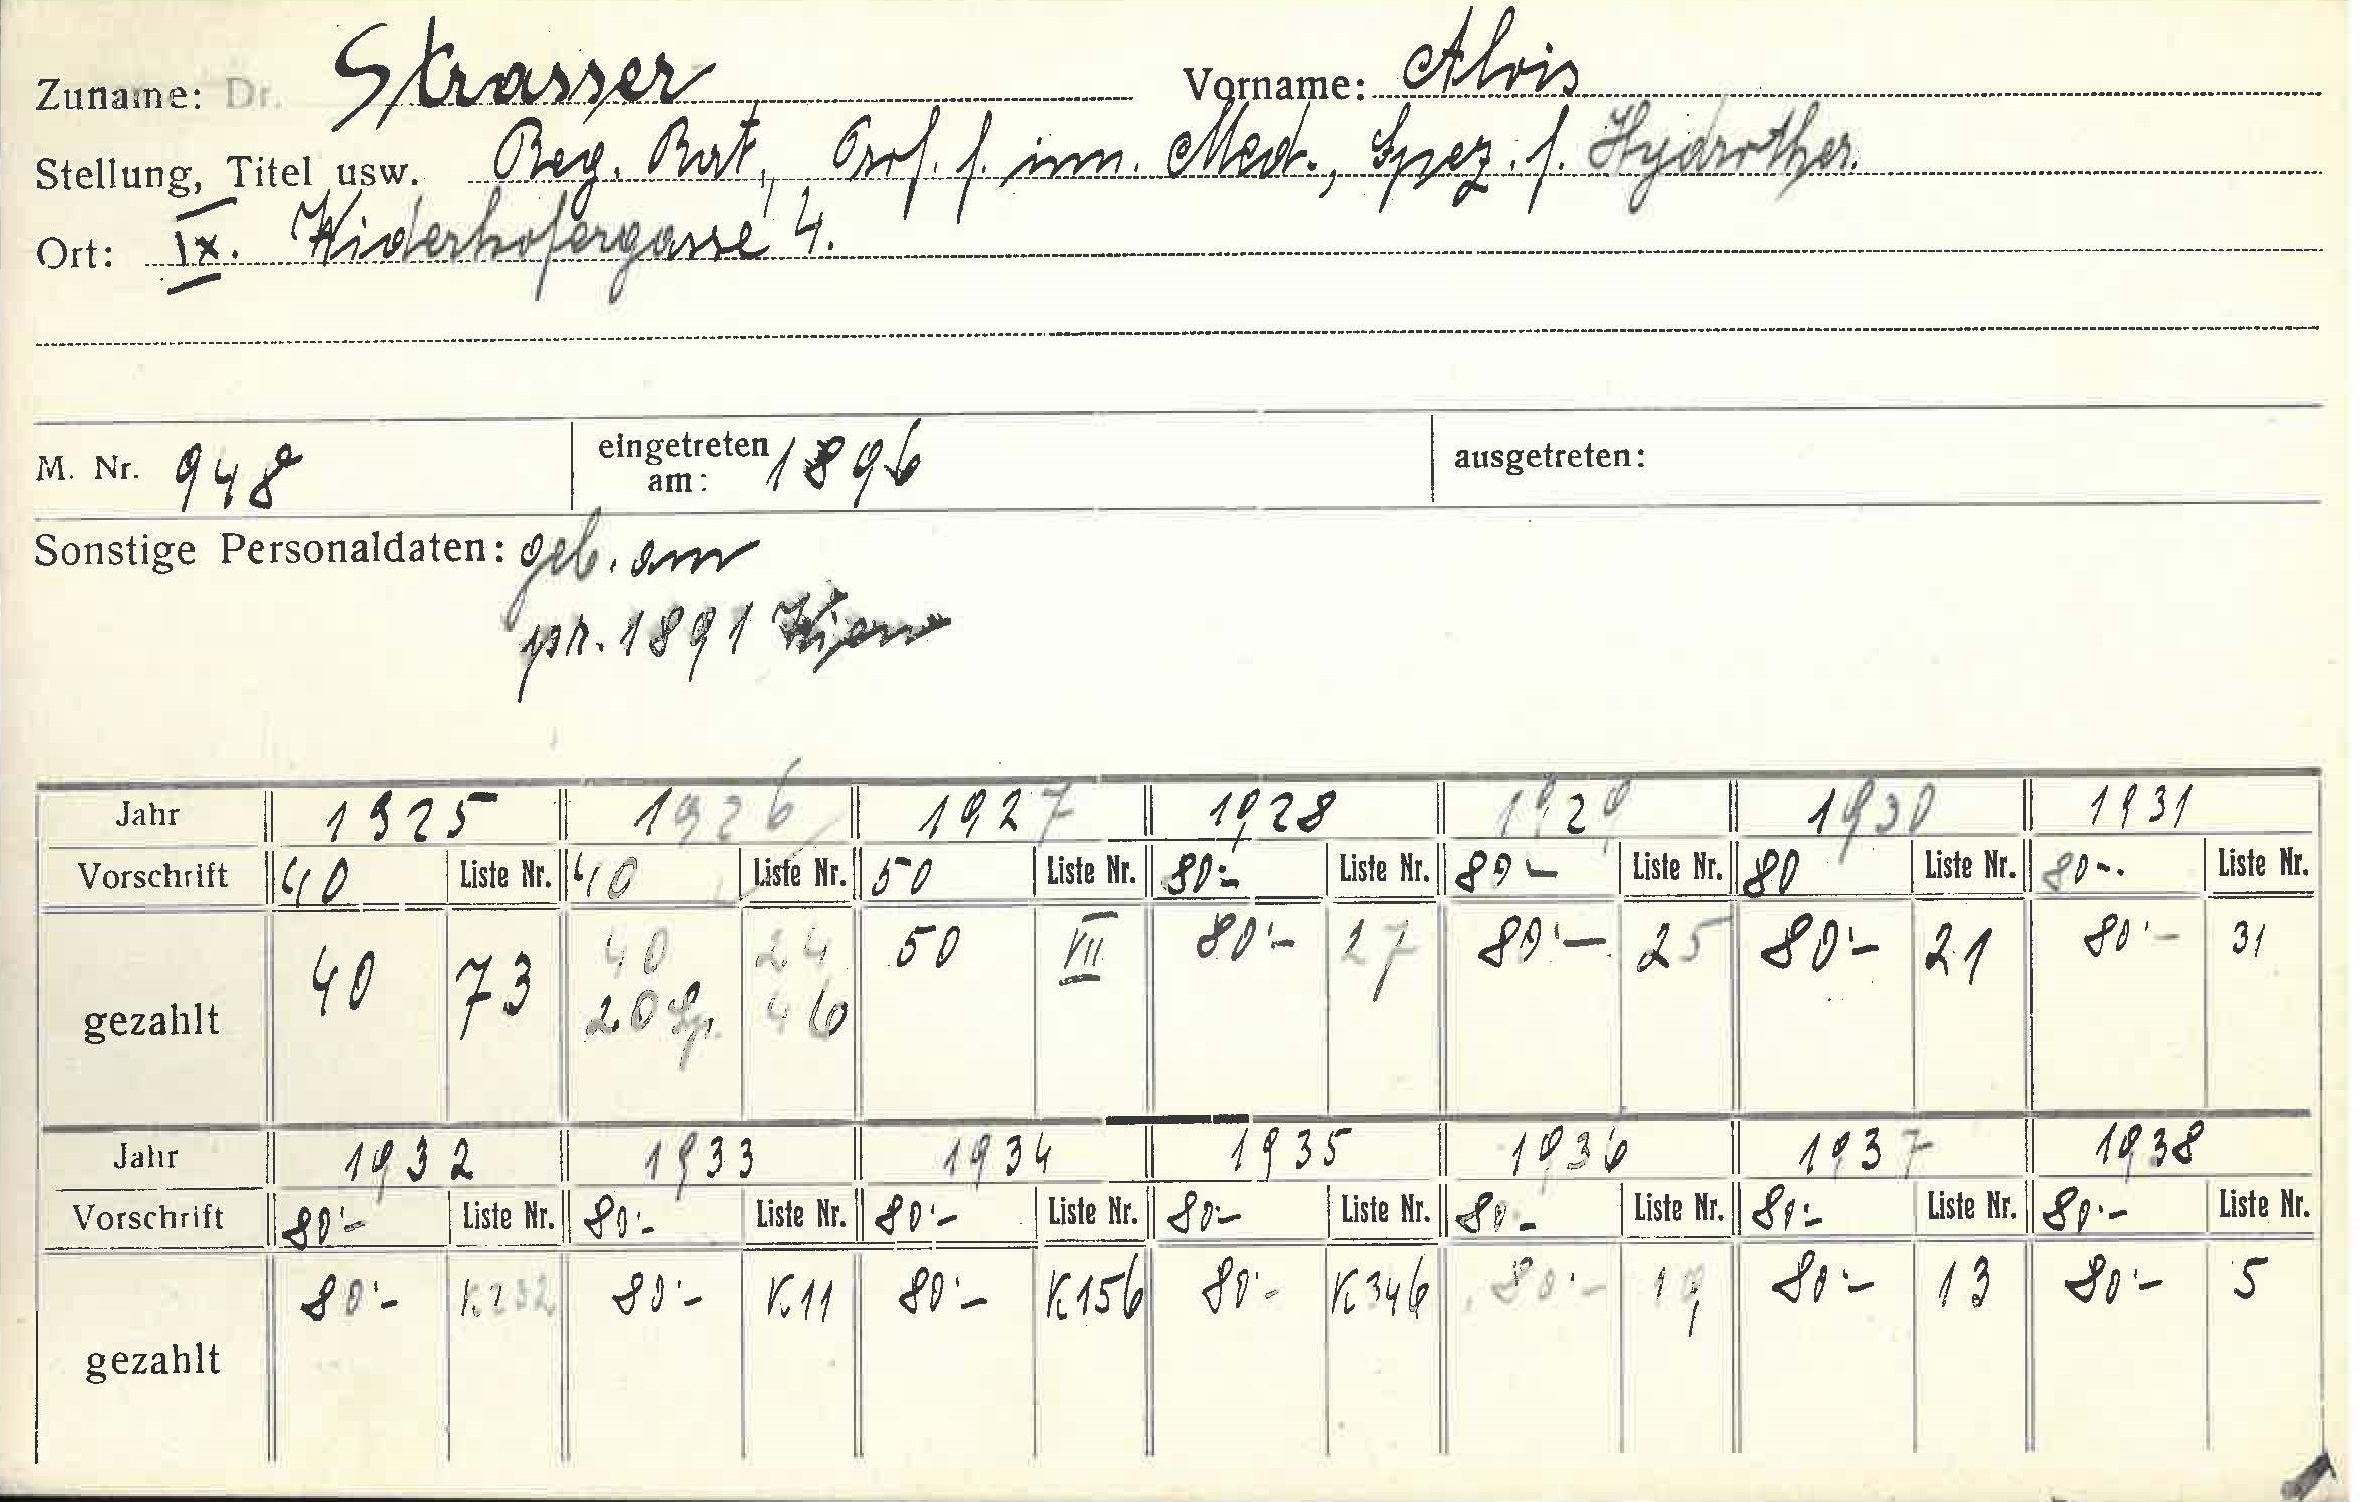 Zuname: Dr. Strasser Vorname: Alois
Stellung, Titel usw. Reg. Rat, Prof. f. inn. Med., Spez. f. Hydrother.
Ort: IX. Widerhofergasse 4.
M. Nr. 948 eingetreten am: 1896 ausgetreten:
Sonstige Personaldaten: geb. am
pr. 1891 Wien
Jahr 1925 1926 1927 1928 1929 1930 1931
Vorschrift 40 Liste Nr. 40 Liste Nr. 50 Liste Nr. 80.- Liste Nr. 80 - Liste Nr. 80 Liste Nr. 80-. Liste Nr.
gezahlt 40 73 40 24 50 VII 80'- 27 80'- 25 80'- 21 80'- 31
20 Sp. 46
Jahr 1932 1933 1934 1935 1936 1937 1938
Vorschrift 80'- Liste Nr. 80.- Liste Nr. 80'- Liste Nr. 80.- Liste Nr. 80.- Liste Nr. 80.- Liste Nr. 80.- Liste Nr.
gezahlt 80'- K232 80'- K11 80'- K156 80'- K346 80'- 19 80'- 13 80'- 5